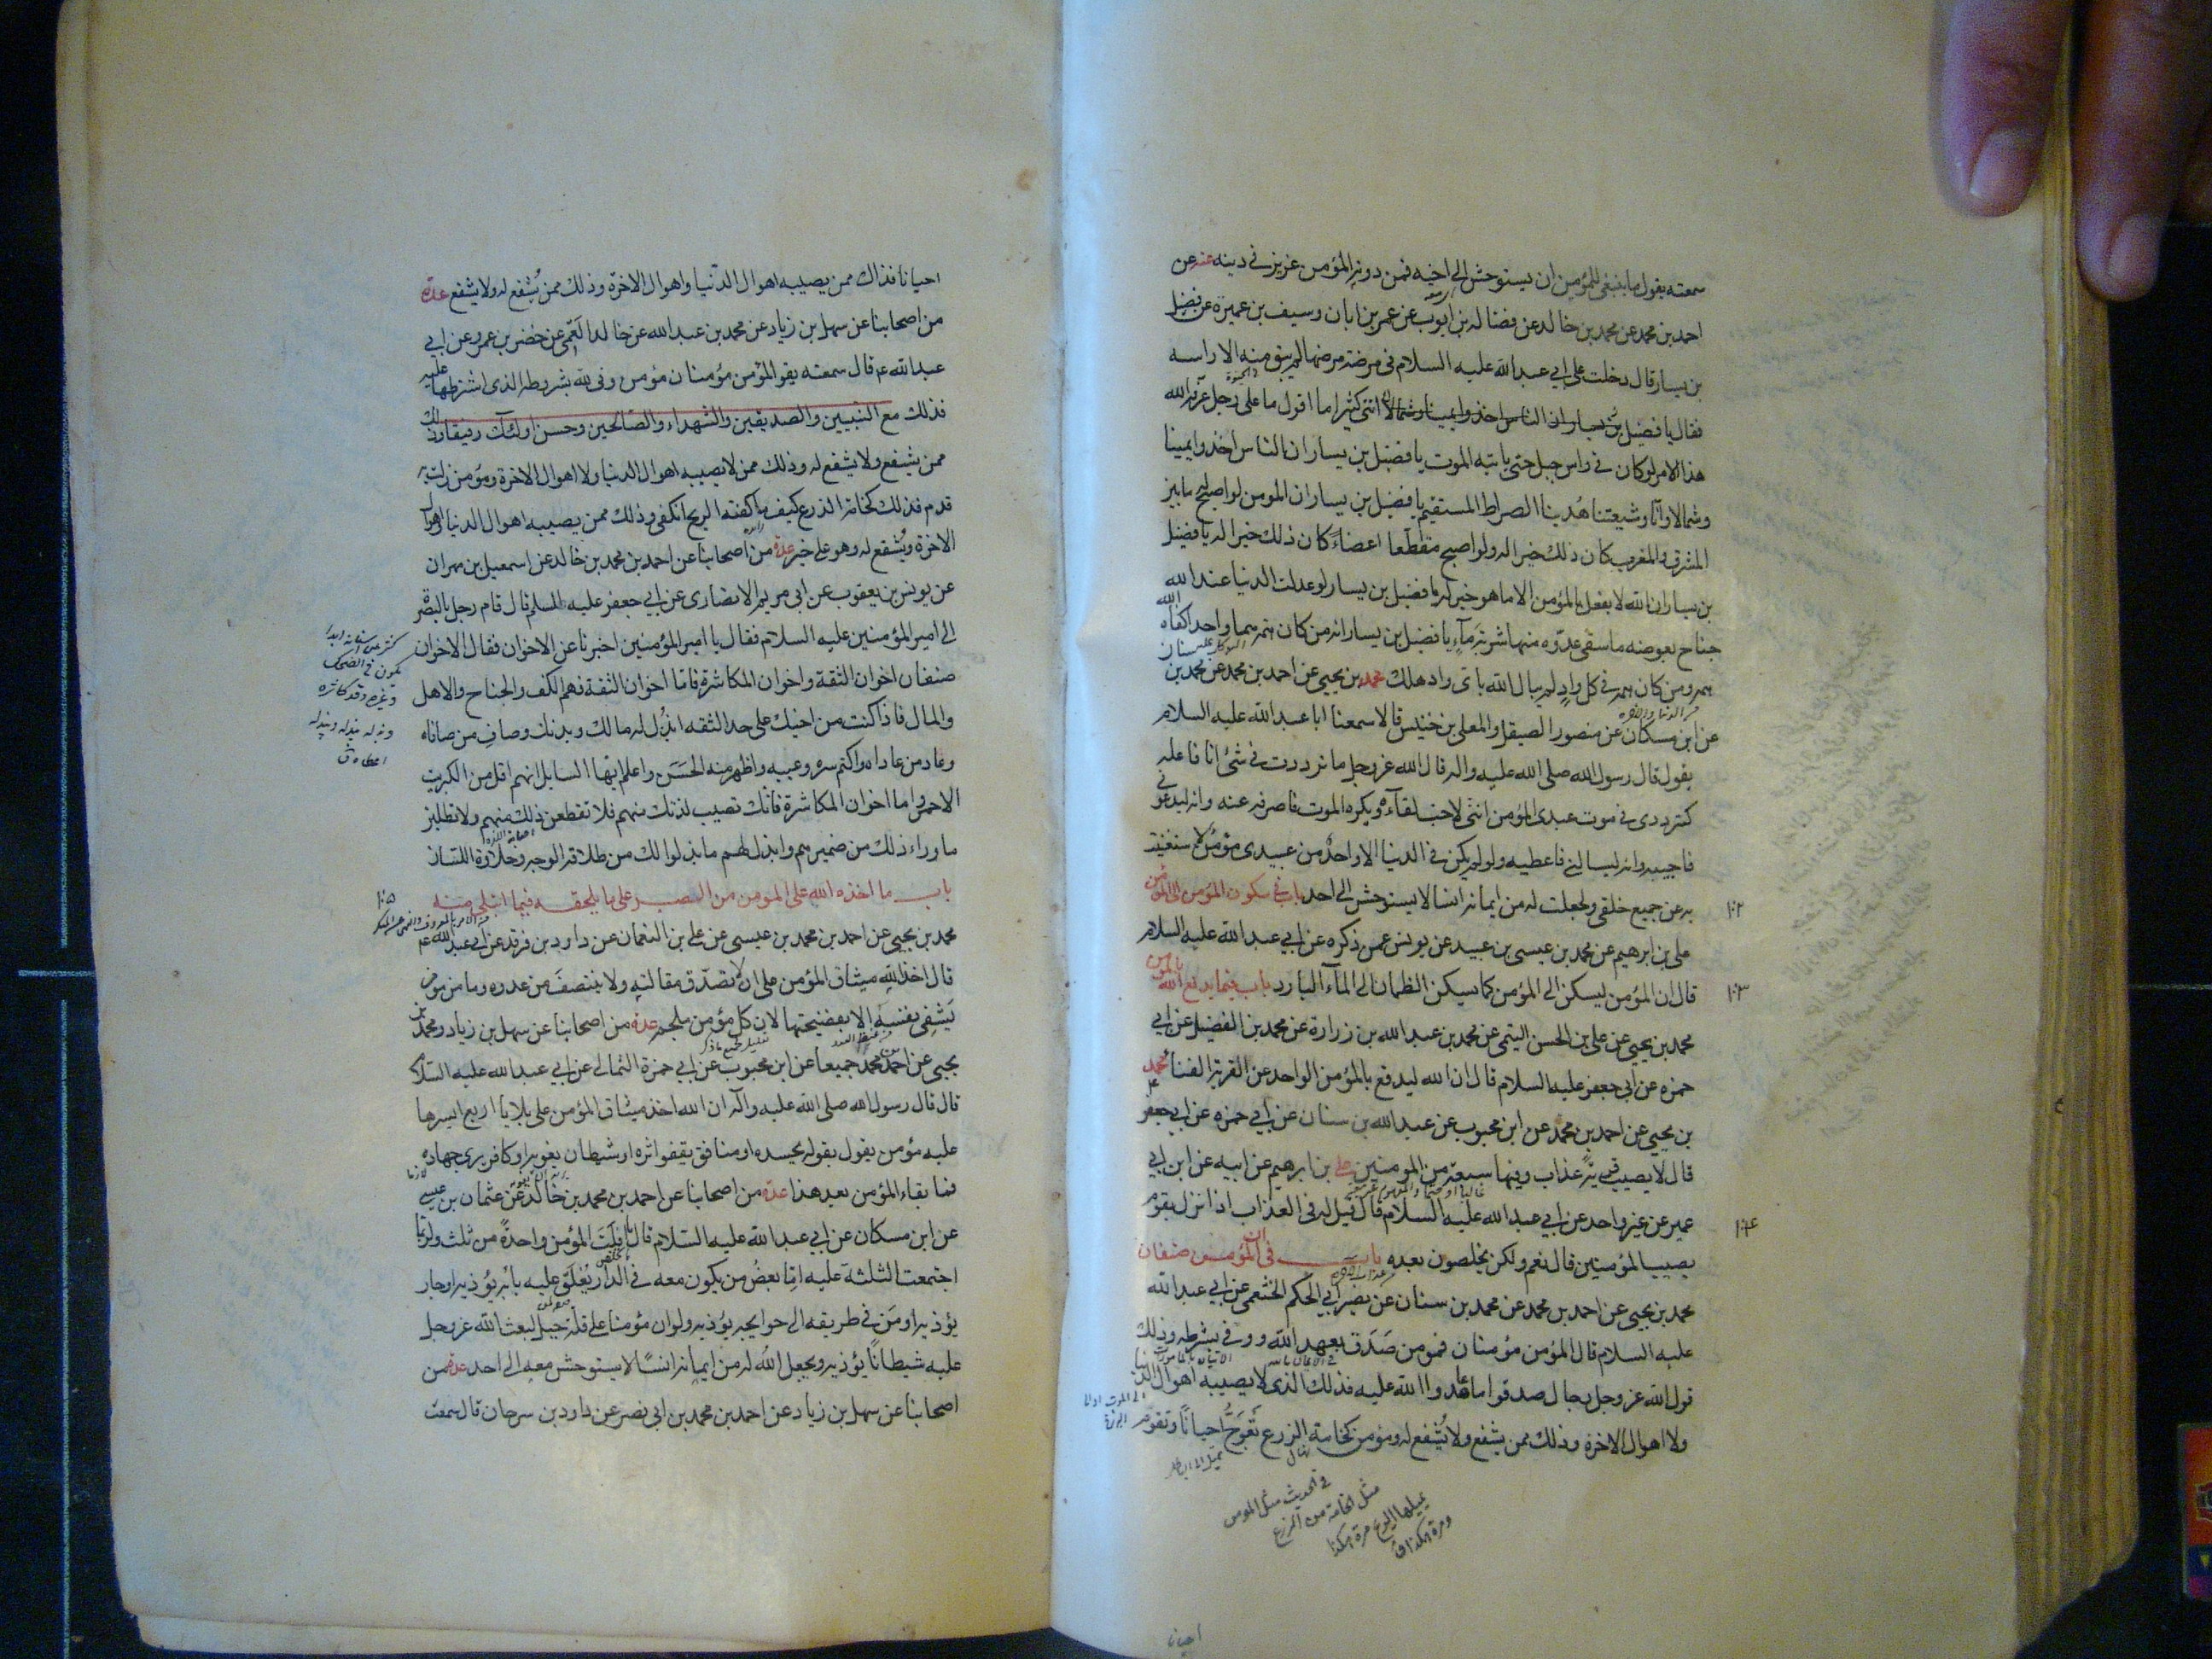 سمعته يقول ما ينبغى للمؤمن ان يستوحش الى اخيه فمن دونه المؤمن عزيز فى دينه عنه عن
احمد بن محمد عن محمد بن خالد عن فضالة بن ايوب عن عمر بن ابان وسيف بن عميرة عن فضيل
بن يسار قال دخلت على ابي عبد الله عليه السلام فى مرضة مرضها لم يبق منه الا راسه
فقال يا فضيل بن يسار ان الناس اخذوا يمينا وشمالا اننى كثيرا ما اقول ما على رجل عرفه الله
هذا الامر لو كان فى راس جبل حتى ياتيه الموت يا فضيل بن يسار ان الناس اخذوا يمينا
وشمالا وانا وشيعتنا هدينا الصراط المستقيم يا فضيل بن يسار ان المومن لو اصبح له ما بين
المشرق والمغرب كان ذلك خيرا له ولو اصبح مقطعا اعضاءً كان ذلك خيرا له يا فضيل
بن يسار ان الله لا يفعل بالمؤمن الا ما هو خير له يا فضيل بن يسار لو عدلت الدنيا عند الله
جناح بعوضة ما سقى عدوه منها شربة مآء يا فضيل بن يسار انه من كان همه هما واحدا كفاه الله
همه ومن كان همه فى كل واد لم يبال الله باى واد هلك محمد بن يحيى عن احمد بن محمد عن محمد بن سنان
عن ابن مسكان عن منصور الصيقل والمعلى بن خنيس قالا سمعنا ابا عبد الله عليه السلام
يقول قال رسول الله صلى الله عليه واله قال الله عز وجل ما ترددت فى شئ انا فاعله
كترددى فى موت عبدى المؤمن اننى لاحب لقآءه ويكره الموت فاصرفه عنه وانه ليدعونى
فاجيبه وانه ليسالنى فاعطيه ولو لم يكن فى الدنيا الا واحد من عبيدى مؤمن لاستغنيت
به عن جميع خلقى ولجعلت له من ايمانه انسا لا يستوحش الى احد باب فى سكون المؤمن الى المؤمن
١٠٢
على بن ابرهيم عن محمد بن عيسى بن عبيد عن يونس عمن ذكره عن ابي عبد الله عليه السلام
قال ان المؤمن ليسكن الى المؤمن كما يسكن الظمان الى المآء البارد باب فيما يدفع الله بالمؤمن
١٠٣
محمد بن يحيى عن على بن الحسن التيمى عن محمد بن عبد الله بن زرارة عن محمد بن الفضيل عن ابي
حمزه عن ابى جعفر عليه السلام قال ان الله ليدفع بالمؤمن الواحد عن القرية الفنآء محمد
بن يحيى عن احمد بن محمد عن ابن محبوب عن عبد الله بن سنان عن ابي حمزه عن ابي جعفر
قال لا يصيب قرية عذاب وفيها سبعة من المومنين على بن ابرهيم عن ابيه عن ابن ابي
عمير عن غير واحد عن ابي عبد الله عليه السلام قال قيل له فى العذاب اذا نزل بقوم
يصيب المؤمنين قال نعم ولكن يخلصون بعده باب فى ان المؤمن صنفان
١٠٤
محمد بن يحيى عن احمد بن محمد عن محمد بن سنان عن نصير ابي الحكم الخثعمى عن ابي عبد الله
عليه السلام قال المؤمن مؤمنان فمومن صدق بعهد الله ووفى بشرطه وذلك
قول الله عز وجل رجال صدقوا ما عاهدوا الله عليه فذلك الذى لا يصيبه اهوال الدنيا
ولا اهوال الاخرة وذلك ممن يشفع ولا يُشفع له ومؤمن كخامة الزرع تعوج احيانا وتقوم
فى الحديث مثل المومن
مثل الخامة من الزرع
تميلها الريح مرة هكذا
ومرة هكذا
احيانا
احيانا فذاك ممن يصيبه اهوال الدنيا واهوال الاخرة وذلك ممن يُشفع له ولا يشفع عدة
من اصحابنا عن سهل بن زياد عن محمد بن عبد الله عن خالد العمى عن خضر بن عمرو عن ابي
عبد الله ع قال سمعته يقول المؤمن مؤمنان مؤمن وفى لله بشروطه الذى اشترطها عليه
فذلك مع النبيين والصديقين والشهداء والصالحين وحسن اولئك رفيقا وذلك
ممن يشفع ولا يشفع له وذلك ممن لا يصيبه اهوال الدنيا ولا اهوال الاخرة ومؤمن زلت به
قدم فذلك كخامة الزرع كيف ما كفته الريح انكفى وذلك ممن يصيبه اهوال الدنيا واهوال
الاخرة ويُشفع له وهو على خير عدة من اصحابنا عن احمد بن محمد بن خالد عن اسمعيل بن مهران
عن يونس بن يعقوب عن ابى مريم الانصارى عن ابي جعفر عليه السلم قال قام رجل بالبصرة
الى امير المؤمنين عليه السلام فقال يا امير المؤمنين اخبرنا عن الاخوان فقال الاخوان
صنفان اخوان الثقة واخوان المكاشرة فاما اخوان الثقة فهم الكف والجناح والاهل
والمال فاذا كنت من اخيك على حد الثقه ابذل له مالك وبدنك وصاف من صافاه
وعاد من عاداه واكتم سره وعيبه واظهر منه الحسن واعلم ايها السايل انهم اقل من الكبريت
الاحمر واما اخوان المكاشرة فانك تصيب لذتك منهم فلا تقطعن ذلك منهم ولا تطلبن
ما وراء ذلك من ضميرهم وابذل لهم ما بذلوا لك من طلاقة الوجه وحلاوة اللسان
باب ما اخذه الله على المومن من الصبر على ما يلحقه فيما ابتلى منه
١٠٥
محمد بن يحيى عن احمد بن محمد بن عيسى عن على بن النعمان عن داود بن فرقد عن ابي عبد الله ع
قال اخذ الله ميثاق المؤمن على ان لا تصدق مقالته ولا ينتصف من عدوه وما من مؤمن
يشفى نفسه الا بفضيحتها لان كل مؤمن ملجم عدة من اصحابنا عن سهل بن زياد ومحمد بن
يحيى عن احمد بن محمد جميعا عن ابن محبوب عن ابي حمزة الثمالى عن ابي عبد الله عليه السلام
قال قال رسول الله صلى الله عليه وآله ان الله اخذ ميثاق المؤمن على بلايا اربع ايسرها
عليه مؤمن يقول بقوله يحسده او منافق يقفوا اثره او شيطان يغويه او كافر يرى جهاده
فما بقاء المؤمن بعد هذا عدة من اصحابنا عن احمد بن محمد بن خالد عن عثمان بن عيسى
عن ابن مسكان عن ابي عبد الله عليه السلام قال ما افلت المؤمن واحدة من ثلث ولربما
اجتمعت الثلثة عليه اما بعض من يكون معه فى الدار يُغلق عليه بابه يؤذيه او جار
يؤذيه او من فى طريقه الى حوايجه يؤذيه ولو ان مؤمنا على قلة جبل لبعث الله عز وجل
عليه شيطانا يؤذيه ويجعل الله له من ايمانه انسا لا يستوحش معه الى احد عدة من
اصحابنا عن سهل بن زياد عن احمد بن محمد بن ابى نصر عن داود بن سرحان قال سمعت